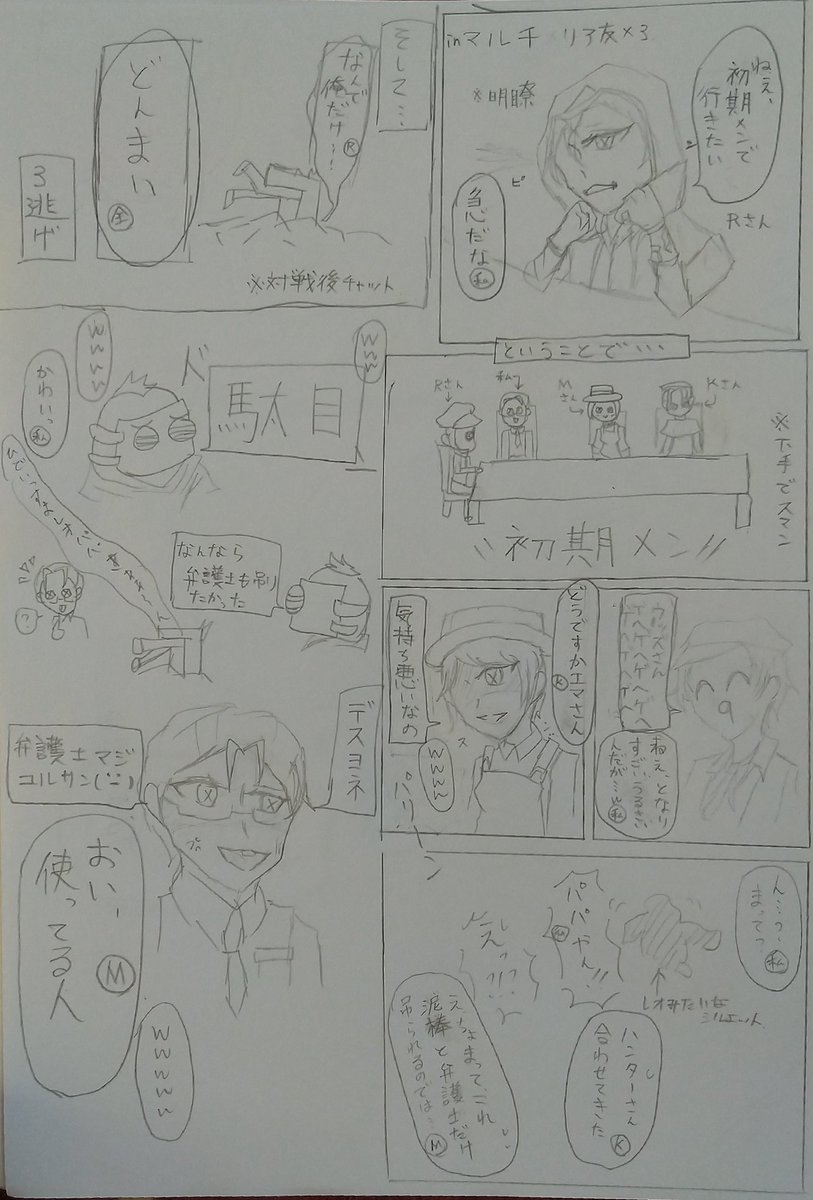 inマルチ リア友×3
ねえ、
初期メンで
行きたい
※明瞭
Rさん
ピ
急だな 私
ということで…
Rさん
私
Mさん
Kさん
※下手でスマン
初期メン
ウッズさん
ゲヘゲヘゲヘ
ねえ、となり
すごいうるさい
んだが…w 私
どうですかエマさん K
気持ち悪いなの
wwww
ス
パリーン
ん…っ、
まってっ 私
レオみたいな
シルエット
パパやん!! M
えっ!?
ハンターさん
合わせてきた K
え、ちょまって、これ
泥棒と弁護士だけ
吊られるのでは… M
そして…
なんで
俺だけ…! R
どんまい 全
3逃げ
※対戦後チャット
wwww
ド
駄目
wwww
かわいっ 私
なんなら
弁護士も吊り
たかった
?
デスヨネ
弁護士マジ
コルサン
おい、
使ってる人 M
wwwww